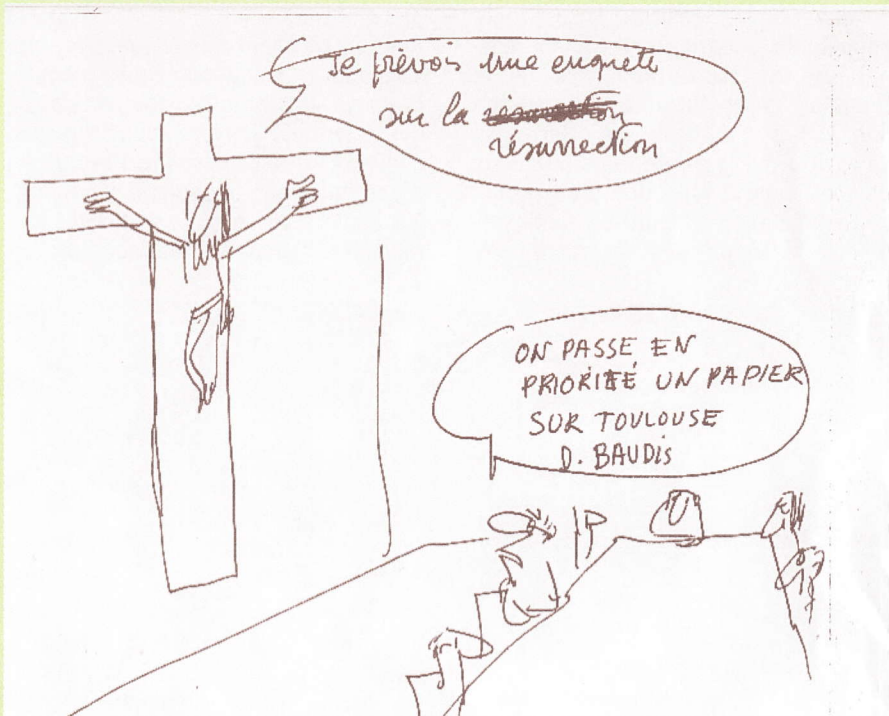 Je prévois une enquete
sur la résurrection
résurrection
ON PASSE EN
PRIORITÉ UN PAPIER
SUR TOULOUSE
D. BAUDIS